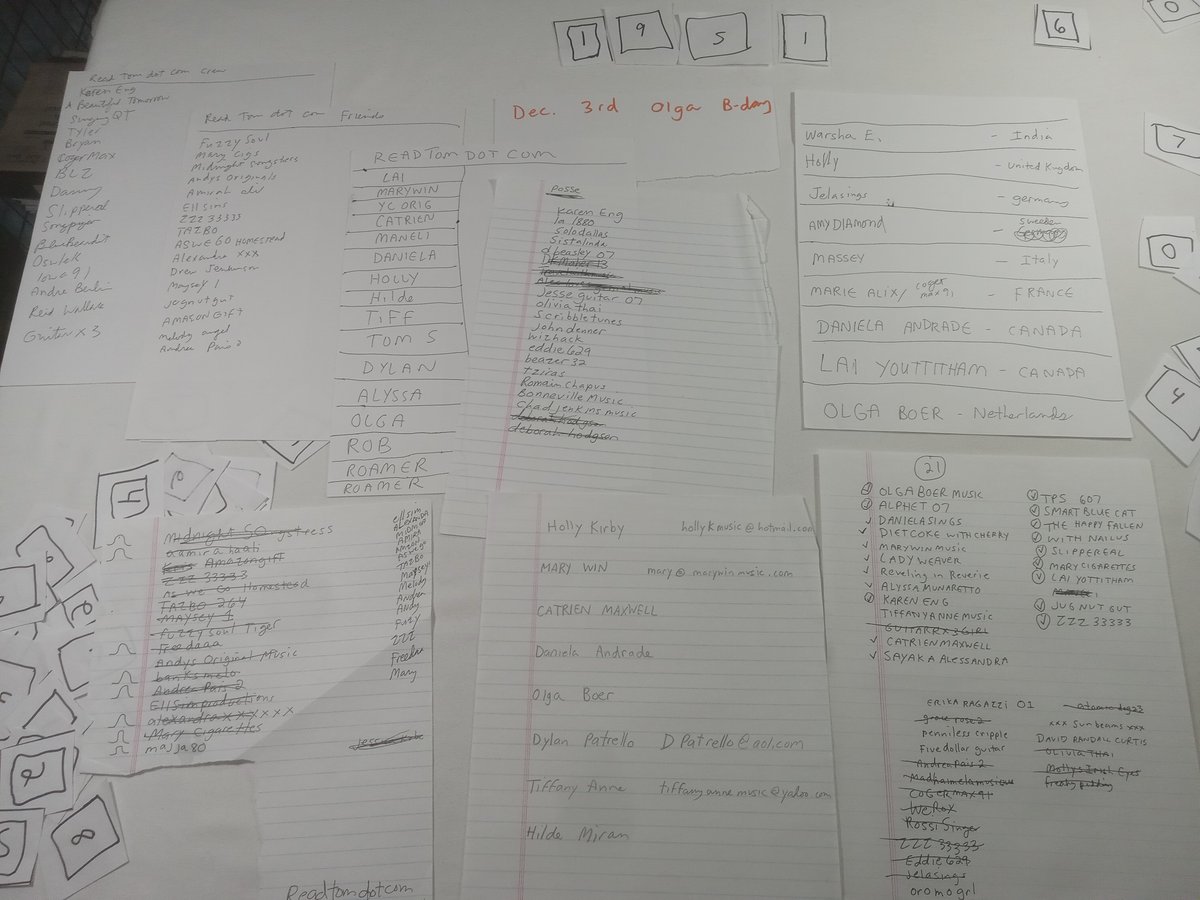 1 9 5 1
6
0
7
0
4
Read Tom dot com Crew
Karen Eng
A Beautiful Tomorrow
Singing QT
Tyler
Bryan
Coger Max
BLZ
Danny
Slippereal
Blue Bandit
Andre Berlin
Reid Wallace
Guitar x 3
Read Tom dot com Friends
Fuzzy Soul
Mary Cigs
Midnight Songsters
Andys Originals
Amirah
Ell sims
ZZZ 33333
TAZBO
AS WE GO HOMESTEAD
Alexandra xxx
Drew
Maysey 1
jugnutgut
AMASON GIFT
melody angel
Andrea Pais 2
READTOM DOT COM
LAI
MARYWIN
YC ORIG
CATRIEN
MANELI
DANIELA
HOLLY
Hilde
TIFF
TOM S
DYLAN
ALYSSA
OLGA
ROB
ROAMER
ROAMER
Dec. 3rd Olga B-day
Posse
Karen Eng
la 1880
solodallas
Sistalinda
dbeasley 07
Jesse guitar 07
olivia thai
scribbletunes
john denner
wizhack
eddie 629
beazer32
tziras
Romain Chapus
Bonneville Music
Chad jenkins music
deborah hodgson
deborah hodgson
Warsha E. - India
Holly - United Kingdom
Jelasings - germany
AMY DIAMOND - Sweeden
MASSEY - Italy
MARIE ALIX / coger max 91 - FRANCE
DANIELA ANDRADE - CANADA
LAI YOUTTITHAM - CANADA
OLGA BOER - Netherlands
4
9
2
5
8
midnight SO ngstress
aamirahaah
Amazongift
ZZZ 33333
as we Go Homestead
TAZBO 264
Maysey 1
Fuzzy Soul Tiger
Freedaaa
Andys Original Music
banksmelo
Andrea Pais 2
Ellsimproductions
alexandra x x x x x x
Mary Cigarettes
majja80
ellsim
AMIRA
Aswego
TAZBO
Maysey
Melody
Andrea
Andy
Fuzzy
ZZZ
Freedaa
Mary
Readtomdotcom
Holly Kirby hollykmusic@hotmail.com
MARY WIN mary@marywinmusic.com
CATRIEN MAXWELL
Daniela Andrade
Olga Boer
Dylan Patrello DPatrello@aol.com
Tiffany Anne tiffanyannemusic@yahoo.com
Hilde Miran
21
OLGA BOER MUSIC
ALPHET 07
DANIELASINGS
DIETCOKE WITH CHERRY
MARYWIN MUSIC
LADY WEAVER
Reveling in Reverie
ALYSSA MUNARETTO
KAREN ENG
TIFFANYANNE MUSIC
GUITARRX3GIRL
CATRIENMAXWELL
SAYAKA ALESSANDRA
TPS 607
SMART BLUE CAT
THE HAPPY FALLEN
WITH NAILUS
SLIPPEREAL
MARY CIGARETTES
LAI YOTTITHAM
JUG NUT GUT
ZZZ 33333
ERIKA RAGAZZI 01
grace rose 2
penniless cripple
Five dollar guitar
Andrea Pais 2
Madhamelamusique
COGERMAX91
WeRox
Rossi Singer
ZZZ 33333
Eddie 629
jelasings
oromogrl
atomic dog 23
xxx Sunbeams xxx
DAVID RANDALL CURTIS
OLIVIA THAI
Mollys Irish Eyes